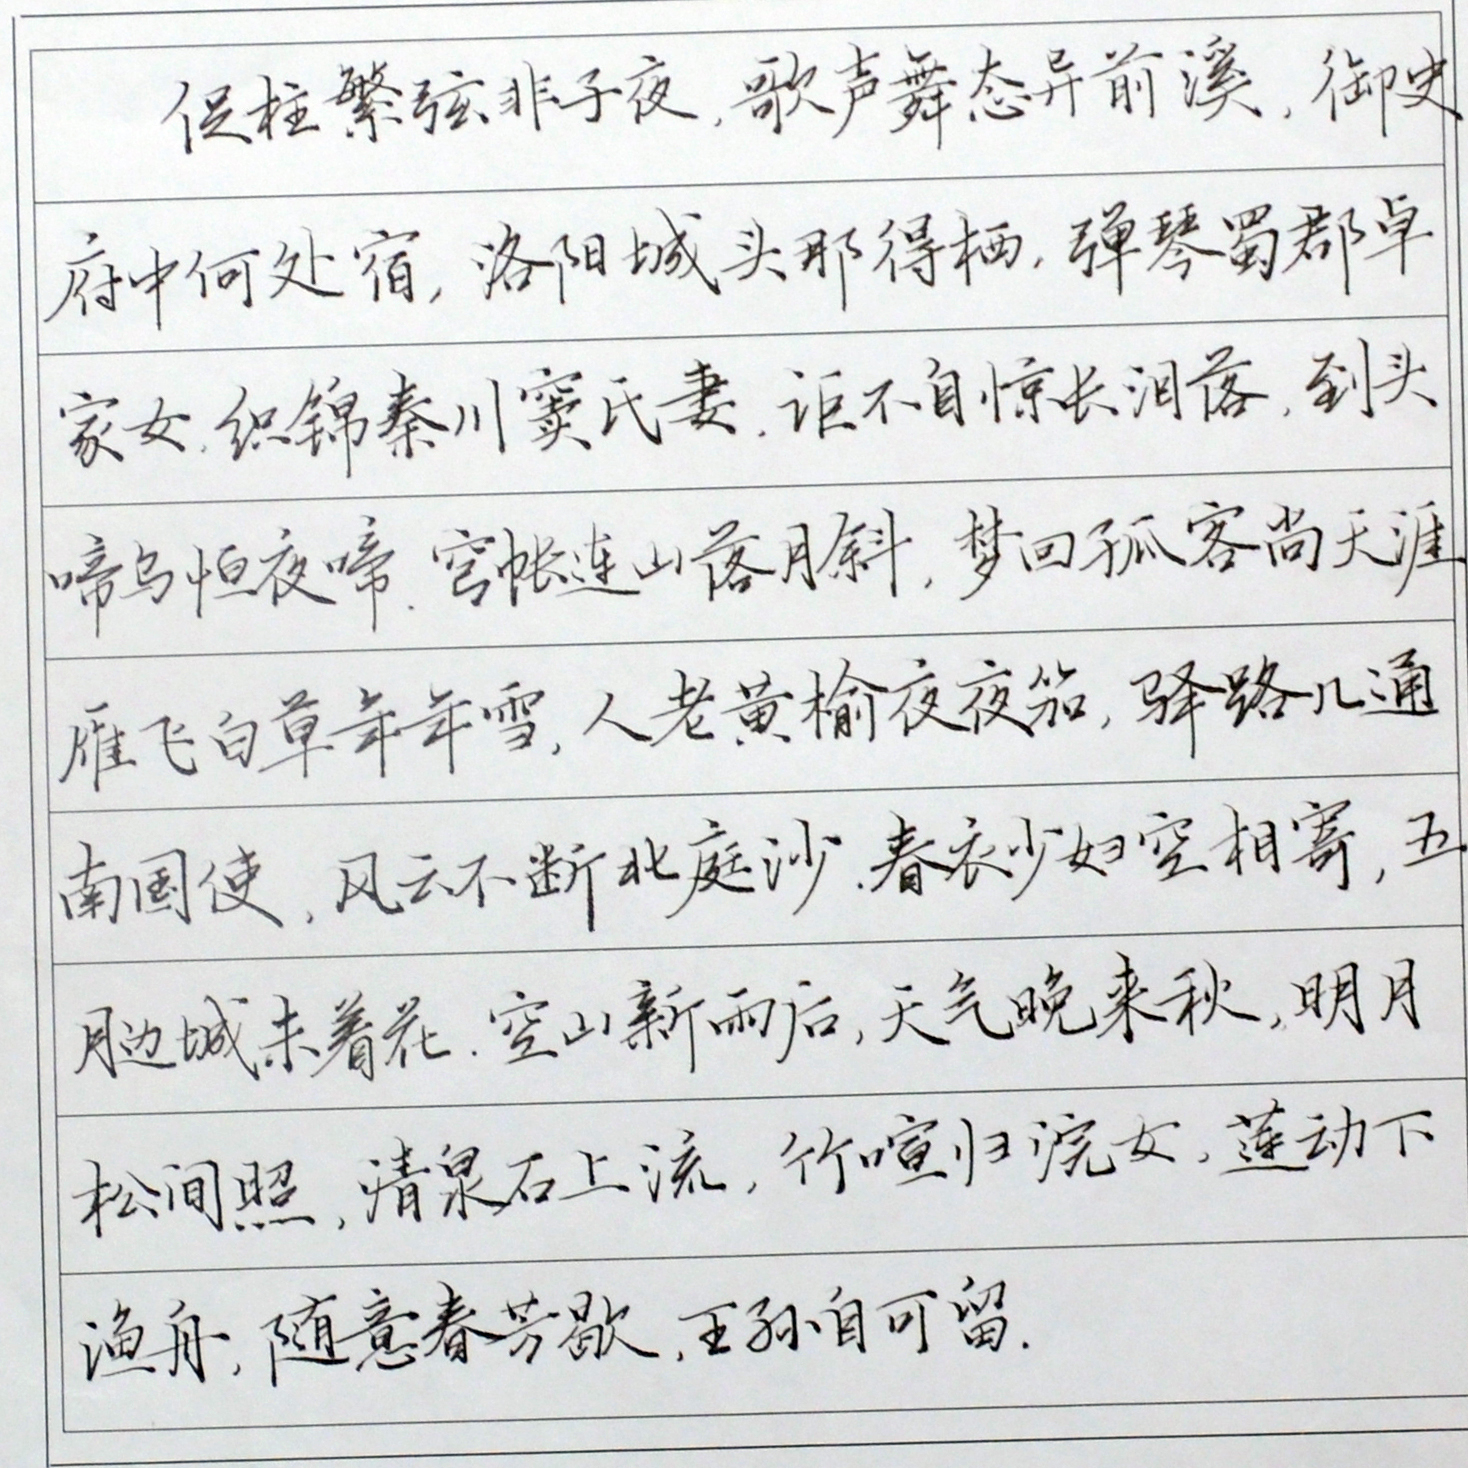 促柱繁弦非子夜,歌声舞态异前溪,御史
府中何处宿,洛阳城头那得栖.弹琴蜀郡卓
家女,织锦秦川窦氏妻.讵不自惊长泪落,到头
啼乌怕夜啼.穹帐连山落月斜,梦回孤客尚天涯
雁飞白草年年雪,人老黄榆夜夜笳,驿路几通
南国使,风云不断北庭沙.春衣少妇空相寄,五
月边城未着花.空山新雨后,天气晚来秋,明月
松间照,清泉石上流,竹喧归浣女,莲动下
渔舟,随意春芳歇,王孙自可留.